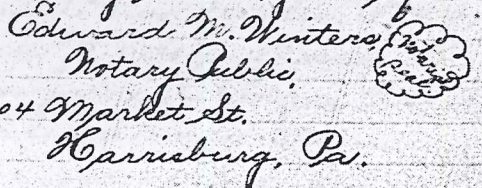 Edward M. Winters,
Notary Public,
04 Market St.
Harrisburg, Pa.